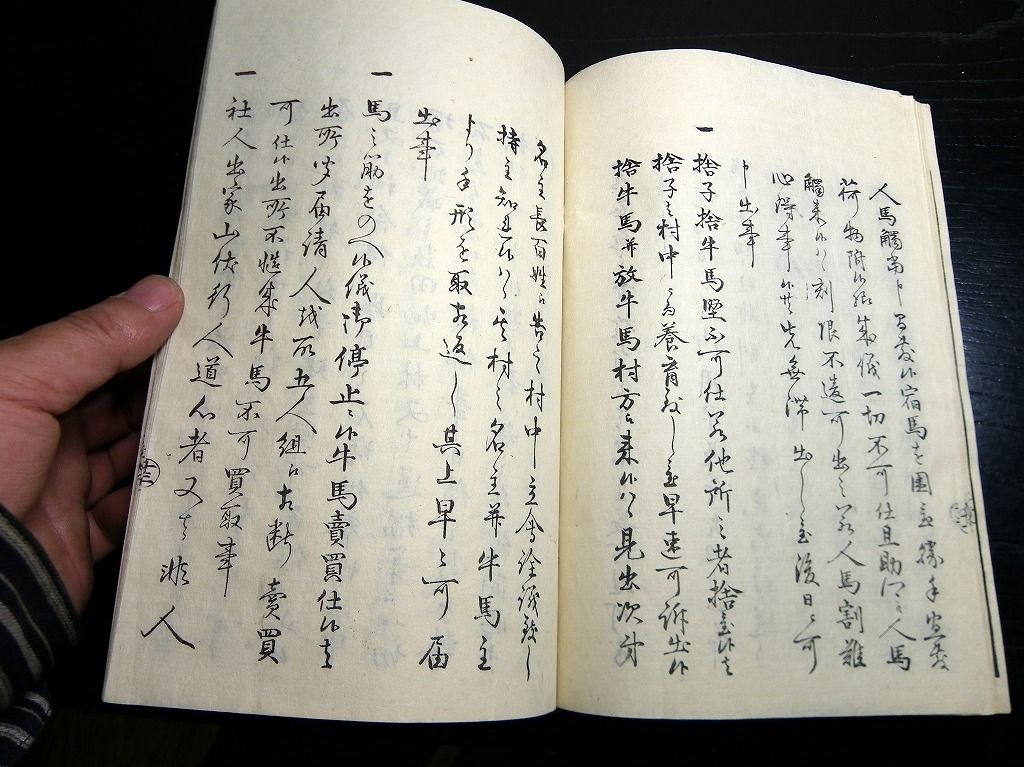 人馬觸當申間敷候宿馬を囲置勝手宜敷
荷物附候躰成儀一切不可仕且助郷之人馬
觸来候ハヽ刻限不遠可出之若人馬割難
心得事候共先無滞出し置後日ニ可
申出事
一 捨子捨牛馬堅不可仕若他所之者捨置候は
捨子は村中ニ而養育致し置早速可訴出候
捨牛馬并放牛馬村方江来候ハヽ見出次第
名主長百姓江告之村中立會詮議致し
持主知連候ハヽ其村之名主并牛馬主
より手形を取相返し其上早々可届
出事
一 馬之筋をのへ候儀御停止候牛馬賣買仕候は
出所聞届請人五人組江相断賣買
可仕候出所不慥成牛馬不可買取事
一 社人出家山伏行人道心者又は非人